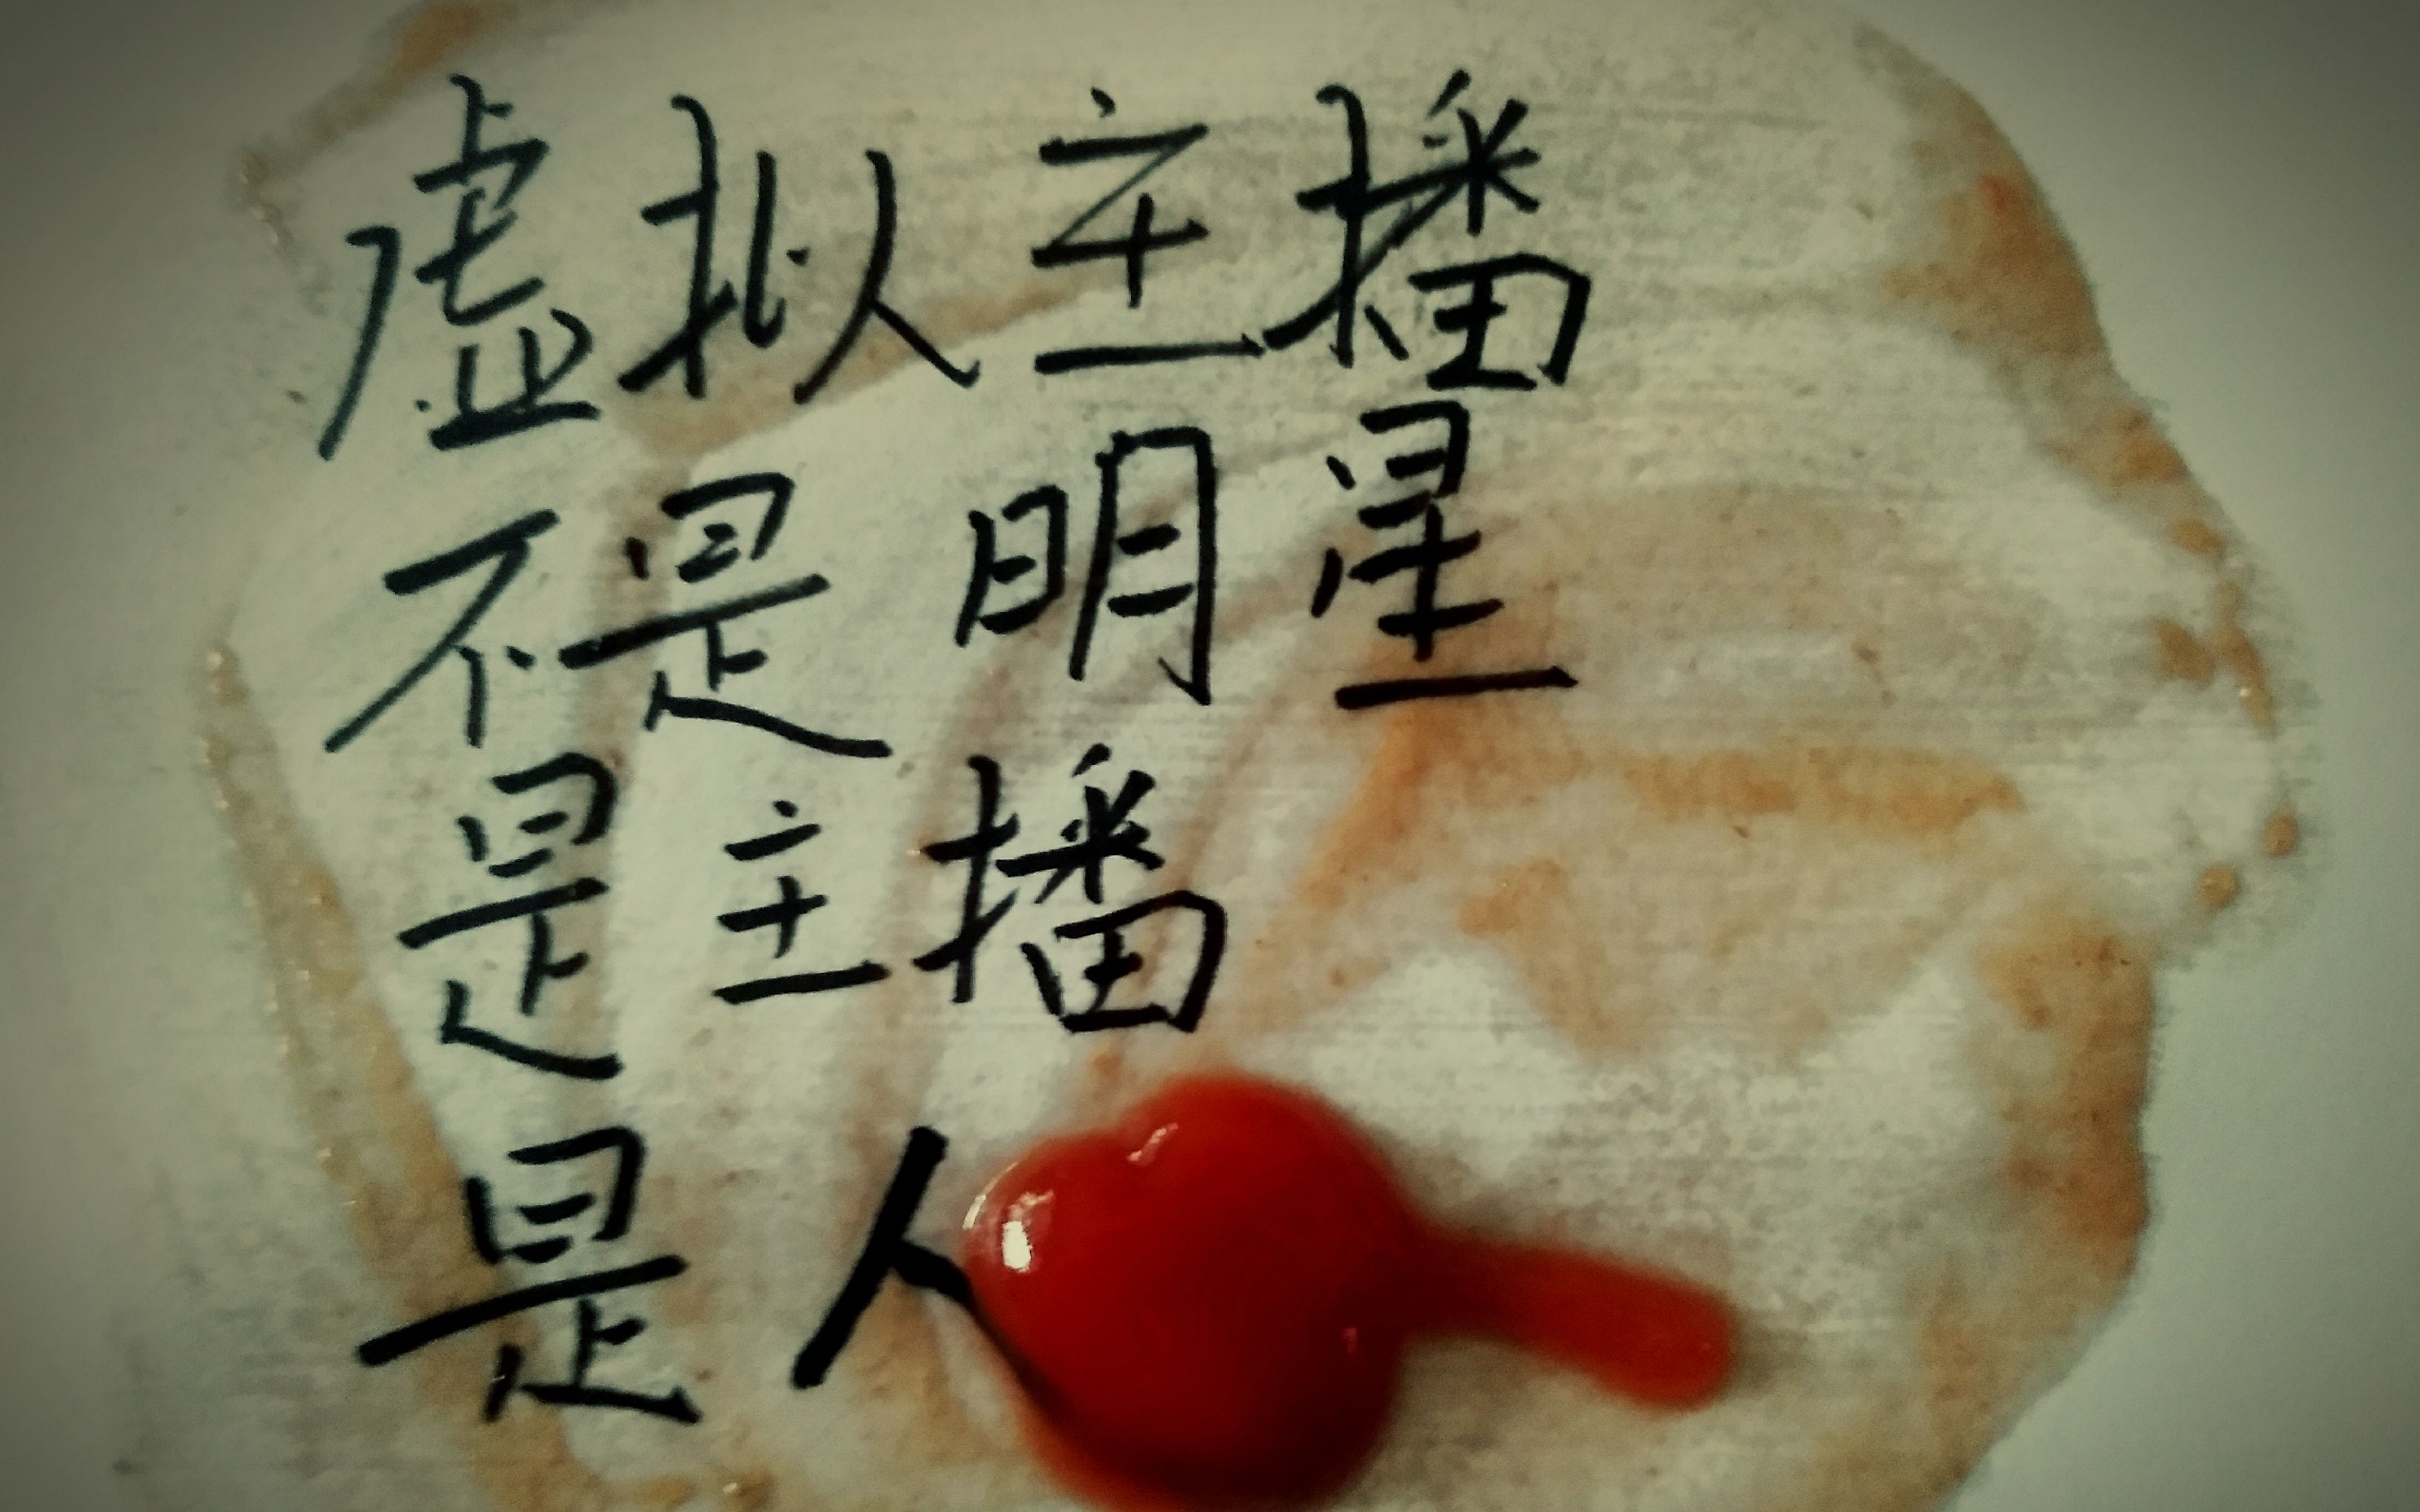 虚拟主播
不是明星
是主播
是人